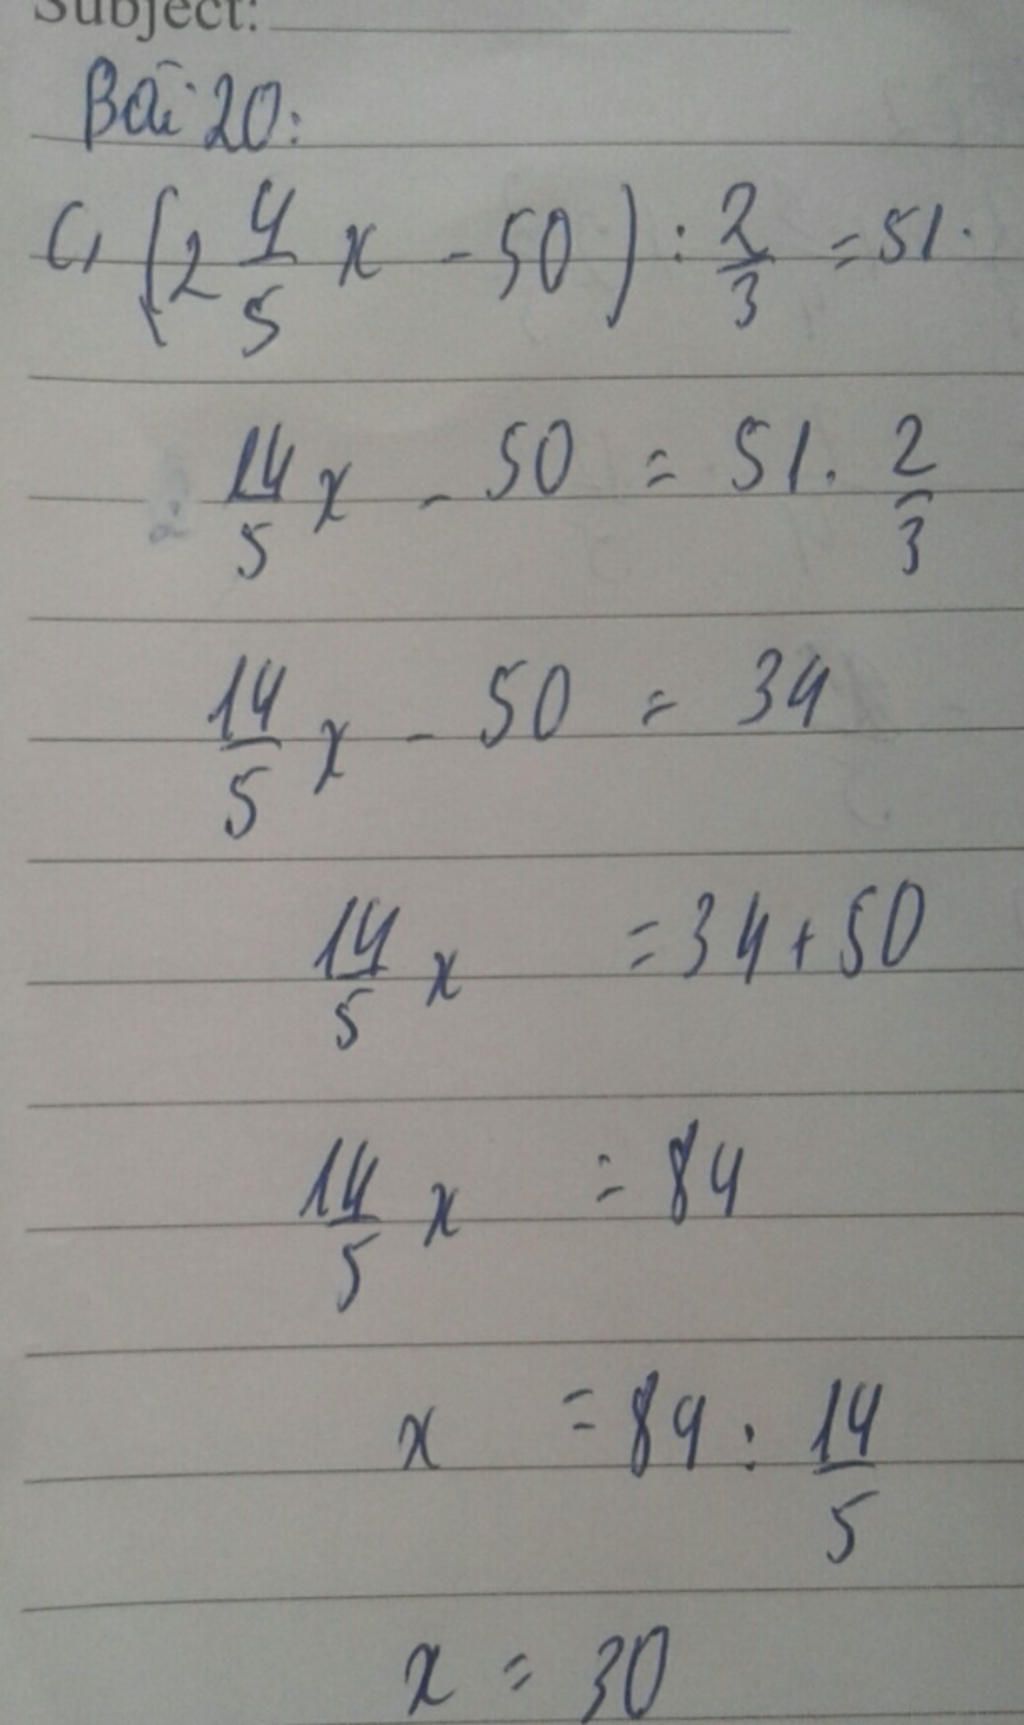 Subject:
Bài 20:
c, (2 4/5 x - 50) : 2/3 = 51.
14/5 x - 50 = 51. 2/3
14/5 x - 50 = 34
14/5 x = 34 + 50
14/5 x = 84
x = 84 : 14/5
x = 30